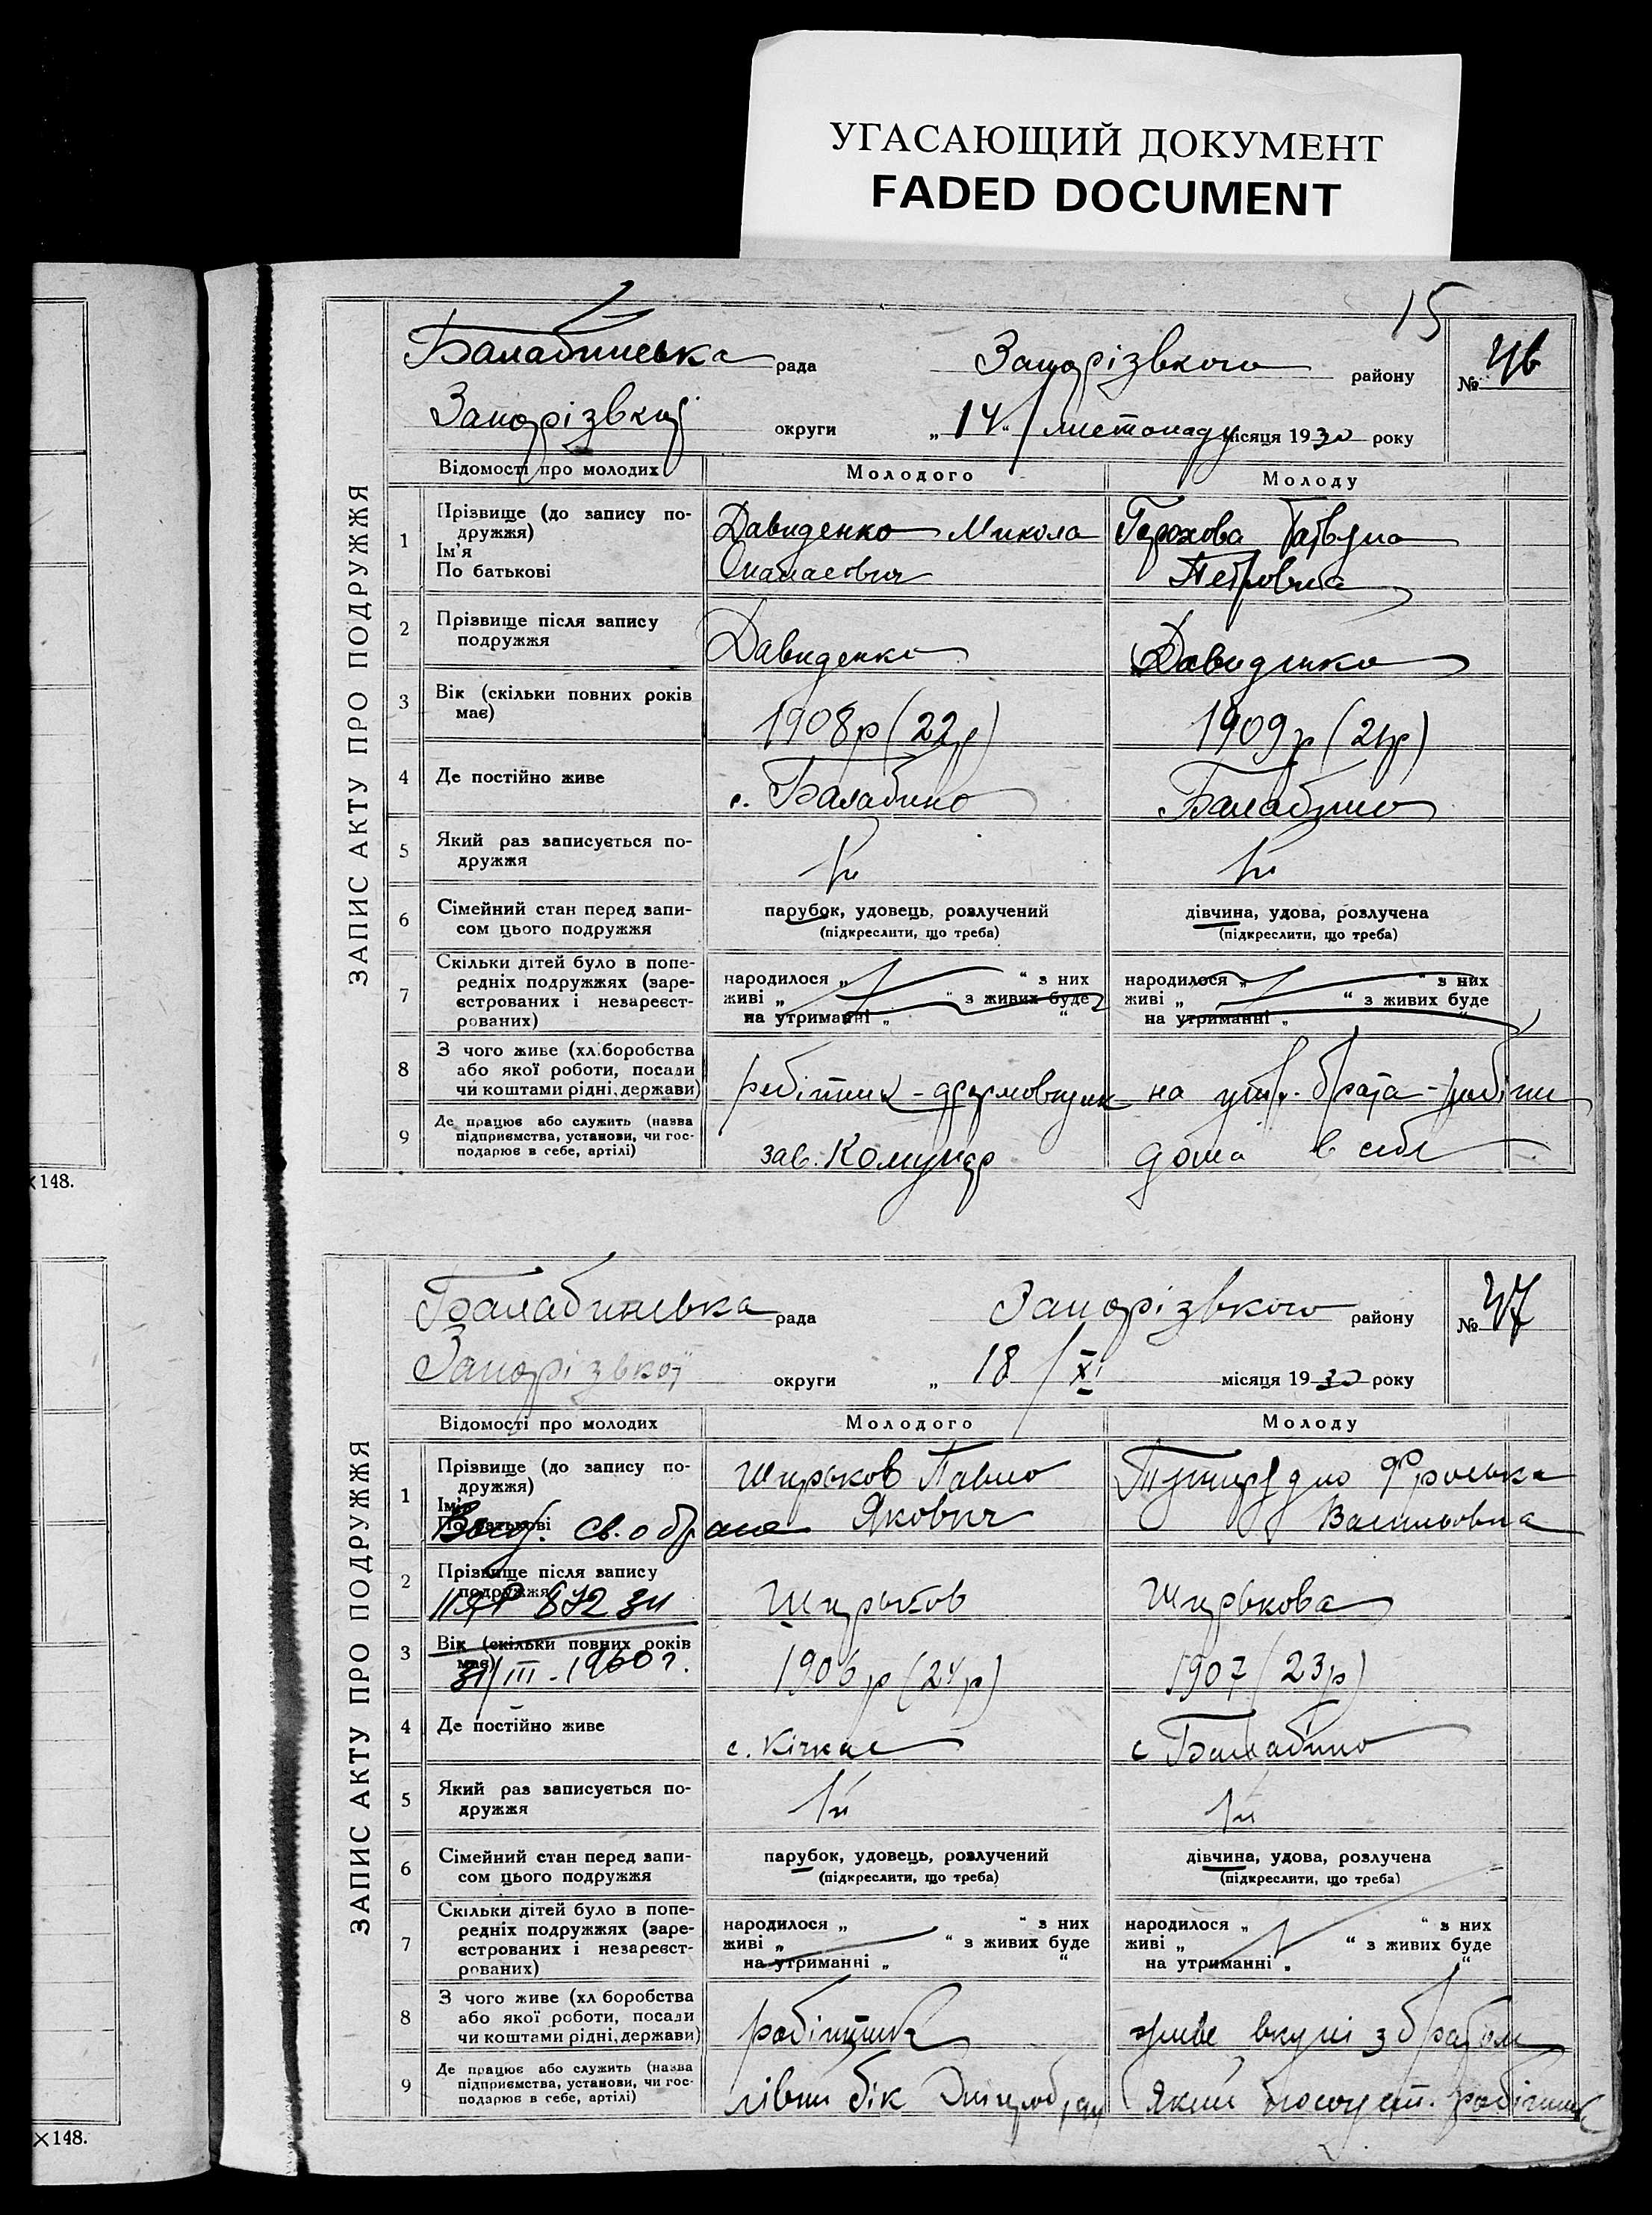 УГАСАЮЩИЙ ДОКУМЕНТ
FADED DOCUMENT
15
ЗАПИС АКТУ ПРО ПОДРУЖЖЯ
Балабинська рада Запорізького району № 46
Запорізької округи „14“ листопада місяця 1930 року
Відомості про молодих Молодого Молоду
1 Прізвище (до запису по-
дружжя)
Ім'я
По батькові
Давиденко Микола
Опанасович
Горохова
Петровна
2 Прізвище після запису
подружжя
Давиденко
Давиденко
3 Вік (скільки повних років
має)
1908р (22р)
1909р (21р)
4 Де постійно живе
с. Балабино
Балабино
5 Який раз записується по-
дружжя
1й
1й
6 Сімейний стан перед запи-
сом цього подружжя
парубок, удовець, розлучений
(підкреслити, що треба)
дівчина, удова, розлучена
(підкреслити, що треба)
7 Скільки дітей було в попе-
редніх подружжях (заре-
єстрованих і незареєст-
рованих)
народилося „ “ з них
живі „ “ з живих буде
на утриманні „ “
народилося „ “ з них
живі „ “ з живих буде
на утриманні „ “
8 З чого живе (хліборобства
або якої роботи, посади
чи коштами рідні, держави)
робітник - формовщик
на утр. брата - робітн
9 Де працює або служить (назва
підприємства, установи, чи гос-
подарює в себе, артілі)
зав. Комунар
дома в себе
×148.
ЗАПИС АКТУ ПРО ПОДРУЖЖЯ
Балабинська рада Запорізького району № 47
Запорізької округи „ 18/XI місяця 1930 року
Відомості про молодих Молодого Молоду
1 Прізвище (до запису по-
дружжя)
Ім'я
По батькові
Ширьков Павло
Якович
Фроська
Васильовна
Выд. св. о браке
2 Прізвище після запису
подружжя
ІІЯР 872 811
Ширьков
Ширькова
3 Вік (скільки повних років
має)
31/III - 1960 г.
1906р (24р)
1907 (23р)
4 Де постійно живе
с. Кічкас
с Балабино
5 Який раз записується по-
дружжя
1й
1й
6 Сімейний стан перед запи-
сом цього подружжя
парубок, удовець, розлучений
(підкреслити, що треба)
дівчина, удова, розлучена
(підкреслити, що треба)
7 Скільки дітей було в попе-
редніх подружжях (заре-
єстрованих і незареєст-
рованих)
народилося „ “ з них
живі „ “ з живих буде
на утриманні „ “
народилося „ “ з них
живі „ “ з живих буде
на утриманні „ “
8 З чого живе (хліборобства
або якої роботи, посади
чи коштами рідні, держави)
робітник
живе вкупі з братом
9 Де працює або служить (назва
підприємства, установи, чи гос-
подарює в себе, артілі)
лівий бік
який робітник
×148.